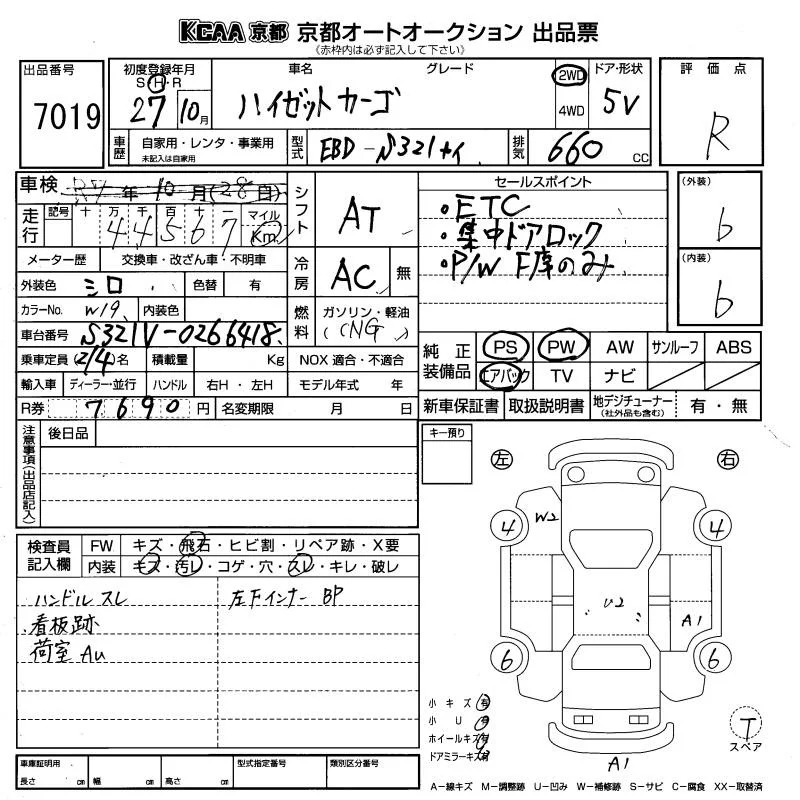 KCAA 京都 京都オートオークション 出品票
(赤枠内は必ず記入して下さい)
出品番号
7019
初度登録年月
S・H・R
27 10月
車名 グレード
ハイゼットカーゴ
2WD
4WD
ドア・形状
5V
評価点
R
車歴
自家用・レンタ・事業用
未記入は自家用
型式
EBD-S321
排気
660 CC
車検 R7年10月(28日)
走行
記号 十 万 千 百 十 一 マイル
44567 Km
シフト
AT
セールスポイント
・ETC
・集中ドアロック
・P/W F席のみ
(外装)
b
(内装)
b
メーター歴 交換車・改ざん車・不明車
冷房
AC 無
外装色 シロ 色替 有
カラーNo. W19 内装色
燃料
ガソリン・軽油
(CNG)
車台番号 S321V-0266418
乗車定員 (2/4)名 積載量 Kg NOX 適合・不適合
輸入車 ディーラー・並行 ハンドル 右H・左H モデル年式 年
R券 7690円 名変期限 月 日
純正装備品
PS PW AW サンルーフ ABS
エアバック TV ナビ
新車保証書 取扱説明書 地デジチューナー (社外品も含む) 有・無
注意事項(出品店記入)
後日品
キー預り
左 右
検査員記入欄
FW キズ・飛石・ヒビ割・リペア跡・X要
内装 キズ・汚レ・コゲ・穴・スレ・キレ・破レ
ハンドル スレ
左下インナー BP
看板跡
荷室 Au
4 W2 4
U2
A1
6 6
A1
小キズ 有
小U 有
ホイールキズ 有
ドアミラーキズ 有
T
スペア
車庫証明用
長さ cm 幅 cm 高さ cm
型式指定番号
類別区分番号
A−線キズ M−調整跡 U−凹み W−補修跡 S−サビ C−腐食 XX−取替済